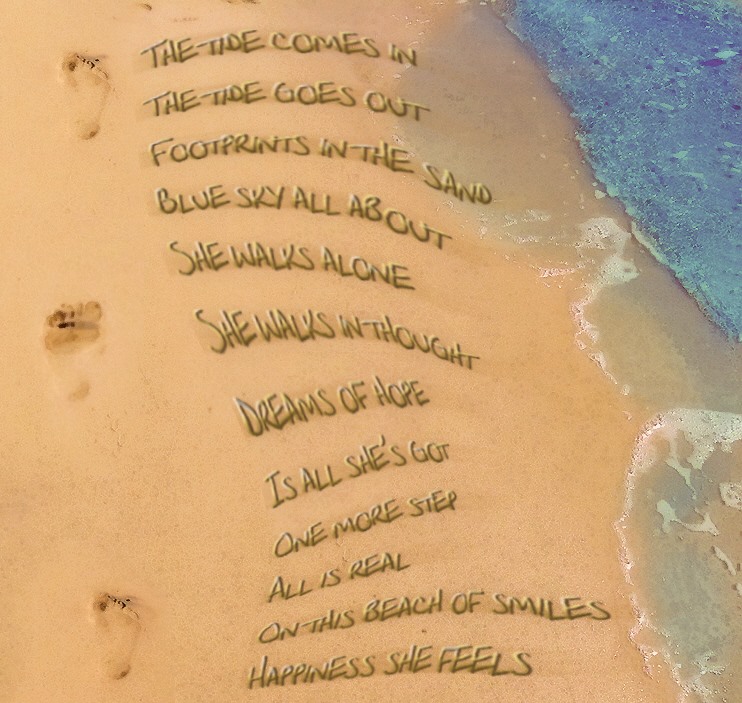 THE TIDE COMES IN
THE TIDE GOES OUT
FOOTPRINTS IN THE SAND
BLUE SKY ALL ABOUT
SHE WALKS ALONE
SHE WALKS IN THOUGHT
DREAMS OF HOPE
IS ALL SHE'S GOT
ONE MORE STEP
ALL IS REAL
ON THIS BEACH OF SMILES
HAPPINESS SHE FEELS